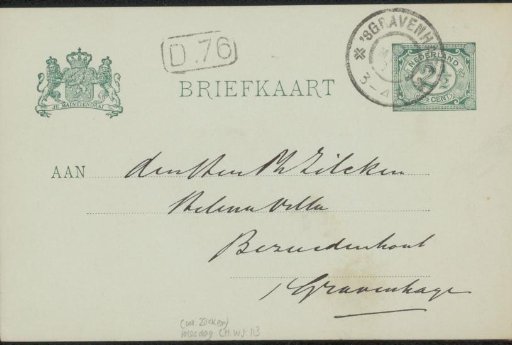 D.76
'SGRAVENH
3-4
NEDERLAND
2½
CENT
JE MAINTIENDRAI
BRIEFKAART
AAN den Heer Ph Zilcken
Helena Villa
Bezuidenhout
's Gravenhage